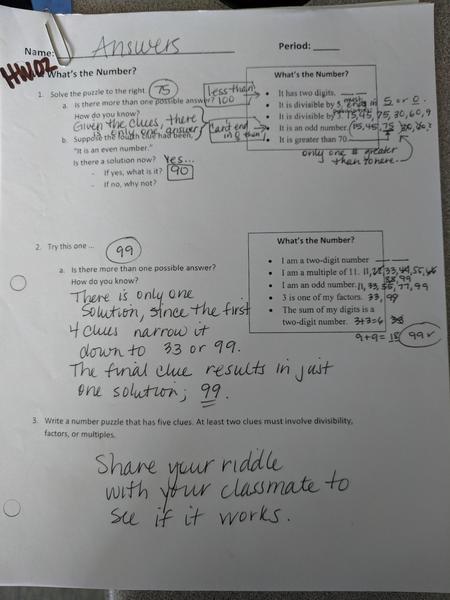 Name: Answers Period:
HW.02
What's the Number?
1. Solve the puzzle to the right. 75
a. Is there more than one possible answer?
How do you know?
Given the clues, there
is only one answer
b. Suppose the fourth clue had been,
"It is an even number."
Is there a solution now? Yes...
- If yes, what is it? 90
- If no, why not?
less than
100
can't end
in 0 then!
What's the Number?
• It has two digits.
• It is divisible by 5. must end in 5 or 0.
• It is divisible by 15, 45, 75, 30, 60, 9
• It is an odd number. 15, 45, 75
• It is greater than 70
only one # greater
than 70 here.
2. Try this one ... 99
a. Is there more than one possible answer?
How do you know?
There is only one
solution, since the first
4 clues narrow it
down to 33 or 99.
The final clue results in just
one solution; 99.
What's the Number?
• I am a two-digit number
• I am a multiple of 11. 11, 22, 33, 44, 55, 66
88, 99
• I am an odd number. 11, 33, 55, 77, 99
• 3 is one of my factors. 33, 99
• The sum of my digits is a
two-digit number. 3+3=6 33
9+9=18 99✓
3. Write a number puzzle that has five clues. At least two clues must involve divisibility,
factors, or multiples.
Share your riddle
with your classmate to
see if it works.